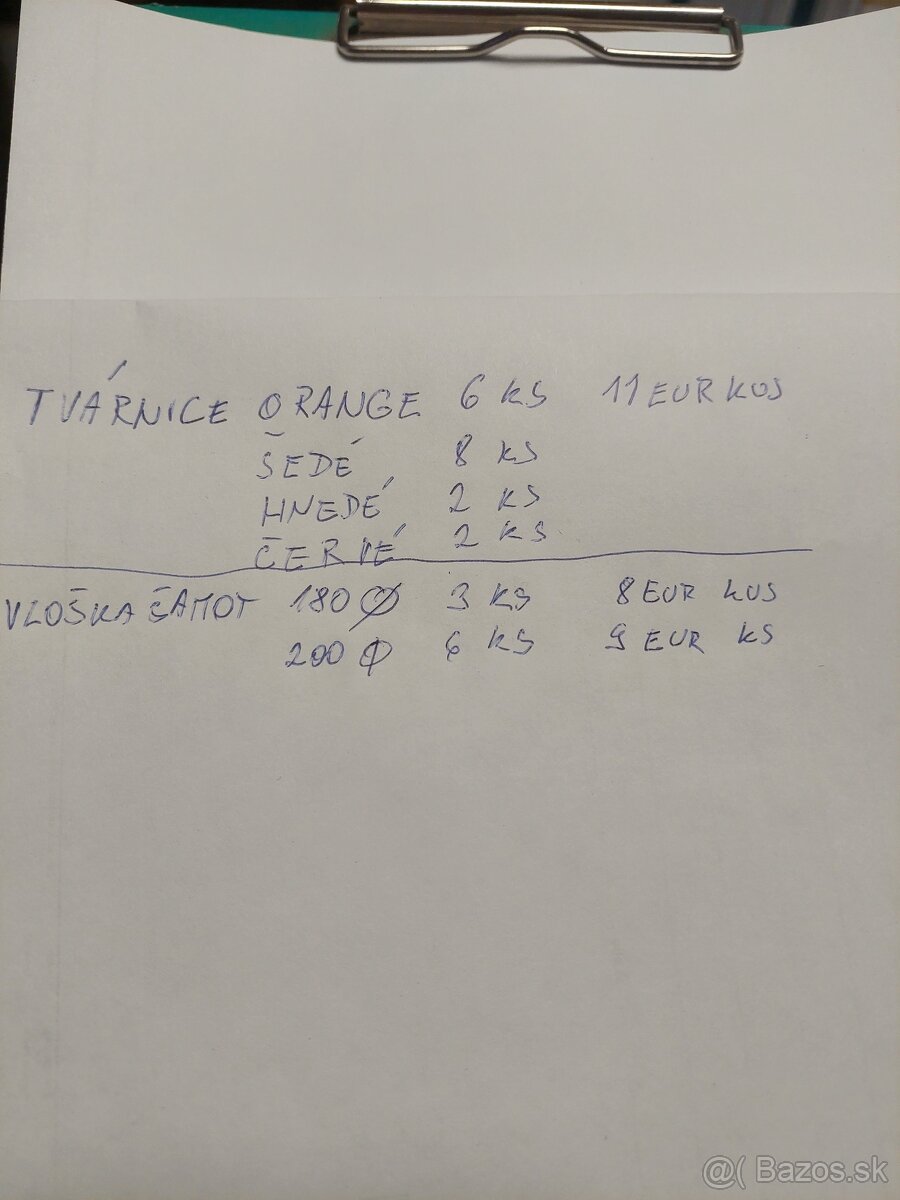 TVÁRNICE ORANGE 6 KS 11 EUR KUS
ŠEDÉ 8 KS
HNEDÉ 2 KS
ČERVÉ 2 KS
VLOŠKA ŠAMOT 180 Ø 3 KS 8 EUR KUS
200 Ø 6 KS 9 EUR KS
@( Bazos.sk